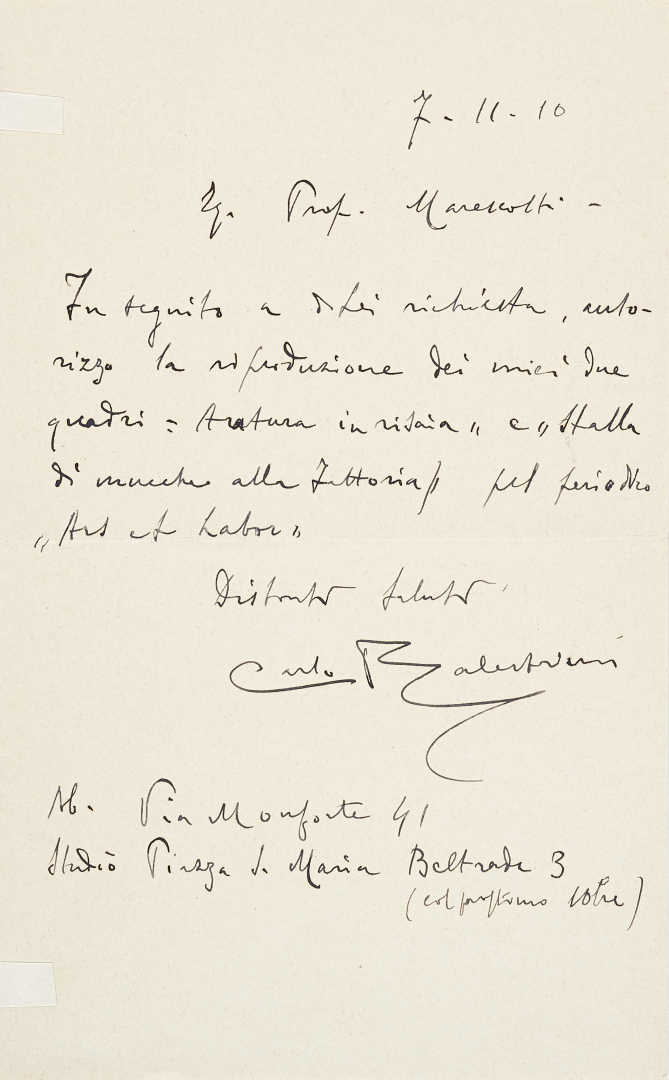 7-11-10
Eg. Prof. Marescotti -
In seguito a di Lei richiesta, auto-
rizzo la riproduzione dei miei due
quadri = Aratura in risaia „ e „ Stalla
di mucche alla Fattoria „ pel periodico
„ Ars et Labor „
Distinti saluti
Carlo Balestrini
Ab. Via Monforte 41
Studio Piazza S. Maria Beltrade 3
(col prossimo 10bre)